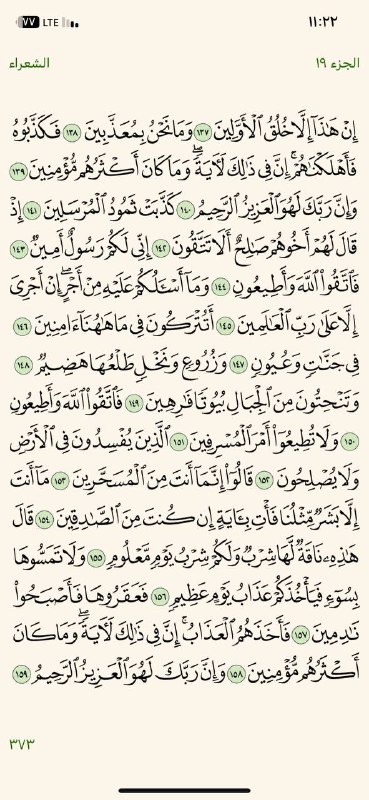 ١١:٢٢ LTE ٧٧
الجزء ١٩ الشعراء
إِنْ هَٰذَآ إِلَّا خُلُقُ ٱلْأَوَّلِينَ ١٣٧ وَمَا نَحْنُ بِمُعَذَّبِينَ ١٣٨ فَكَذَّبُوهُ
فَأَهْلَكْنَٰهُمْ ۗ إِنَّ فِى ذَٰلِكَ لَـَٔايَةً ۖ وَمَا كَانَ أَكْثَرُهُم مُّؤْمِنِينَ ١٣٩
وَإِنَّ رَبَّكَ لَهُوَ ٱلْعَزِيزُ ٱلرَّحِيمُ ١٤٠ كَذَّبَتْ ثَمُودُ ٱلْمُرْسَلِينَ ١٤١ إِذْ
قَالَ لَهُمْ أَخُوهُمْ صَٰلِحٌ أَلَا تَتَّقُونَ ١٤٢ إِنِّى لَكُمْ رَسُولٌ أَمِينٌ ١٤٣
فَٱتَّقُوا۟ ٱللَّهَ وَأَطِيعُونِ ١٤٤ وَمَآ أَسْـَٔلُكُمْ عَلَيْهِ مِنْ أَجْرٍ ۖ إِنْ أَجْرِىَ
إِلَّا عَلَىٰ رَبِّ ٱلْعَٰلَمِينَ ١٤٥ أَتُتْرَكُونَ فِى مَا هَٰهُنَآ ءَامِنِينَ ١٤٦
فِى جَنَّٰتٍ وَعُيُونٍ ١٤٧ وَزُرُوعٍ وَنَخْلٍ طَلْعُهَا هَضِيمٌ ١٤٨
وَتَنْحِتُونَ مِنَ ٱلْجِبَالِ بُيُوتًا فَٰرِهِينَ ١٤٩ فَٱتَّقُوا۟ ٱللَّهَ وَأَطِيعُونِ
١٥٠ وَلَا تُطِيعُوٓا۟ أَمْرَ ٱلْمُسْرِفِينَ ١٥١ ٱلَّذِينَ يُفْسِدُونَ فِى ٱلْأَرْضِ
وَلَا يُصْلِحُونَ ١٥٢ قَالُوٓا۟ إِنَّمَآ أَنتَ مِنَ ٱلْمُسَحَّرِينَ ١٥٣ مَآ أَنتَ
إِلَّا بَشَرٌ مِّثْلُنَا فَأْتِ بِـَٔايَةٍ إِن كُنتَ مِنَ ٱلصَّٰدِقِينَ ١٥٤ قَالَ
هَٰذِهِۦ نَاقَةٌ لَّهَا شِرْبٌ وَلَكُمْ شِرْبُ يَوْمٍ مَّعْلُومٍ ١٥٥ وَلَا تَمَسُّوهَا
بِسُوٓءٍ فَيَأْخُذَكُمْ عَذَابُ يَوْمٍ عَظِيمٍ ١٥٦ فَعَقَرُوهَا فَأَصْبَحُوا۟
نَٰدِمِينَ ١٥٧ فَأَخَذَهُمُ ٱلْعَذَابُ ۗ إِنَّ فِى ذَٰلِكَ لَـَٔايَةً ۖ وَمَا كَانَ
أَكْثَرُهُم مُّؤْمِنِينَ ١٥٨ وَإِنَّ رَبَّكَ لَهُوَ ٱلْعَزِيزُ ٱلرَّحِيمُ ١٥٩
٣٧٣